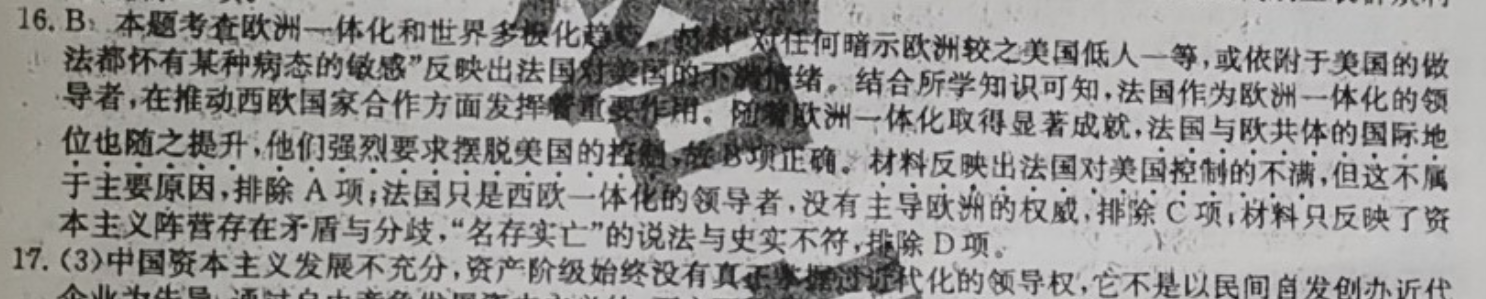 16. B 本题考查欧洲一体化和世界多极化趋势。材料“对任何暗示欧洲较之美国低人一等,或依附于美国的做
法都怀有某种病态的敏感”反映出法国对美国的不满情绪。结合所学知识可知,法国作为欧洲一体化的领
导者,在推动西欧国家合作方面发挥着重要作用。随着欧洲一体化取得显著成就,法国与欧共体的国际地
位也随之提升,他们强烈要求摆脱美国的控制,故B项正确。材料反映出法国对美国控制的不满,但这不属
于主要原因,排除 A 项;法国只是西欧一体化的领导者,没有主导欧洲的权威,排除 C 项;材料只反映了资
本主义阵营存在矛盾与分歧,“名存实亡”的说法与史实不符,排除 D 项。
17. (3)中国资本主义发展不充分,资产阶级始终没有真正掌握过近代化的领导权,它不是以民间自发创办近代